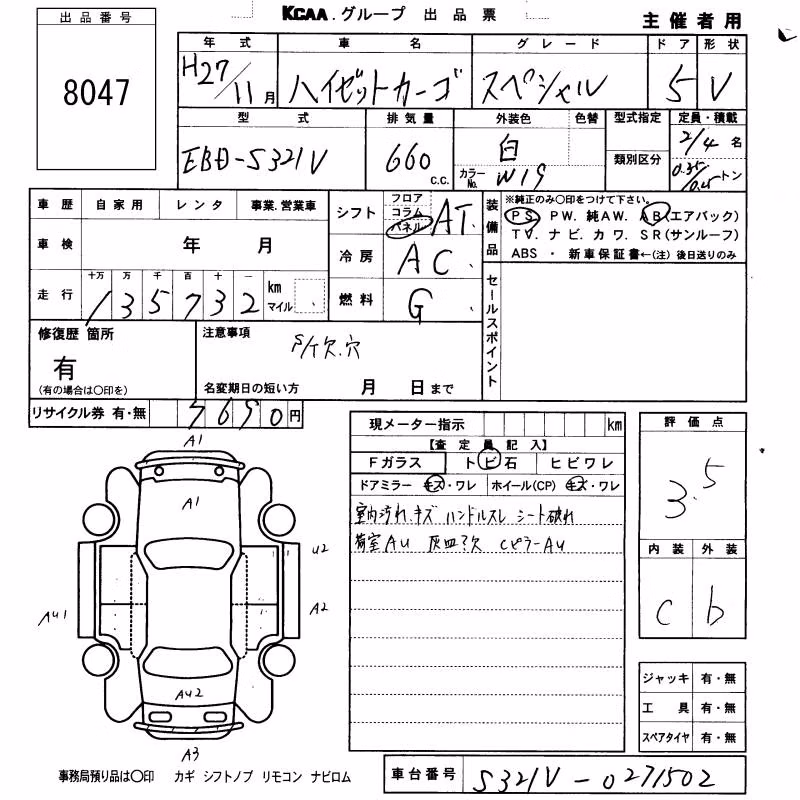 出品番号
8047
KCAA.グループ 出品票
主催者用
年式 車名 グレード ドア 形状
H27/11月 ハイゼットカーゴ スペシャル 5 V
型式 排気量 外装色 色替 型式指定 定員・積載
EBD-S321V 660 c.c. 白 2/4名
カラーNo. W19 類別区分 0.35/ トン
車歴 自家用 レンタ 事業.営業車
シフト フロア コラム パネル AT.
装備品
※純正のみ〇印をつけて下さい。
PS PW. 純AW. AB(エアバック)
TV. ナビ. カワ. SR(サンルーフ)
ABS ・ 新車保証書←(注) 後日送りのみ
車検 年 月
冷房 AC.
走行 十万 万 千 百 十 一
135732 km マイル
燃料 G
セールスポイント
修復歴 箇所
有
(有の場合は〇印を)
注意事項
S/T欠.穴
名変期日の短い方 月 日まで
リサイクル券 有・無 7690円
現メーター指示 km
【査定員記入】
Fガラス トビ石 ヒビワレ
ドアミラー キズ・ワレ ホイール(CP) キズ・ワレ
室内汚れ.キズ ハンドルスレ シート破れ
荷室AU 灰皿?欠 CピラーAU
評価点
3.5
内装 外装
C b
ジャッキ 有・無
工具 有・無
スペアタイヤ 有・無
A1
A1
U2
AU1
A2
AU2
A3
事務局預り品は〇印 カギ シフトノブ リモコン ナビロム
車台番号 S321V-0271502